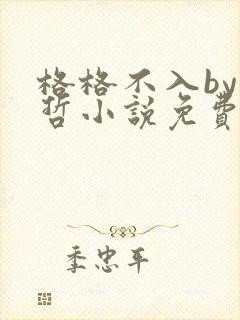 格格不入by
哲小說免費
季忠平